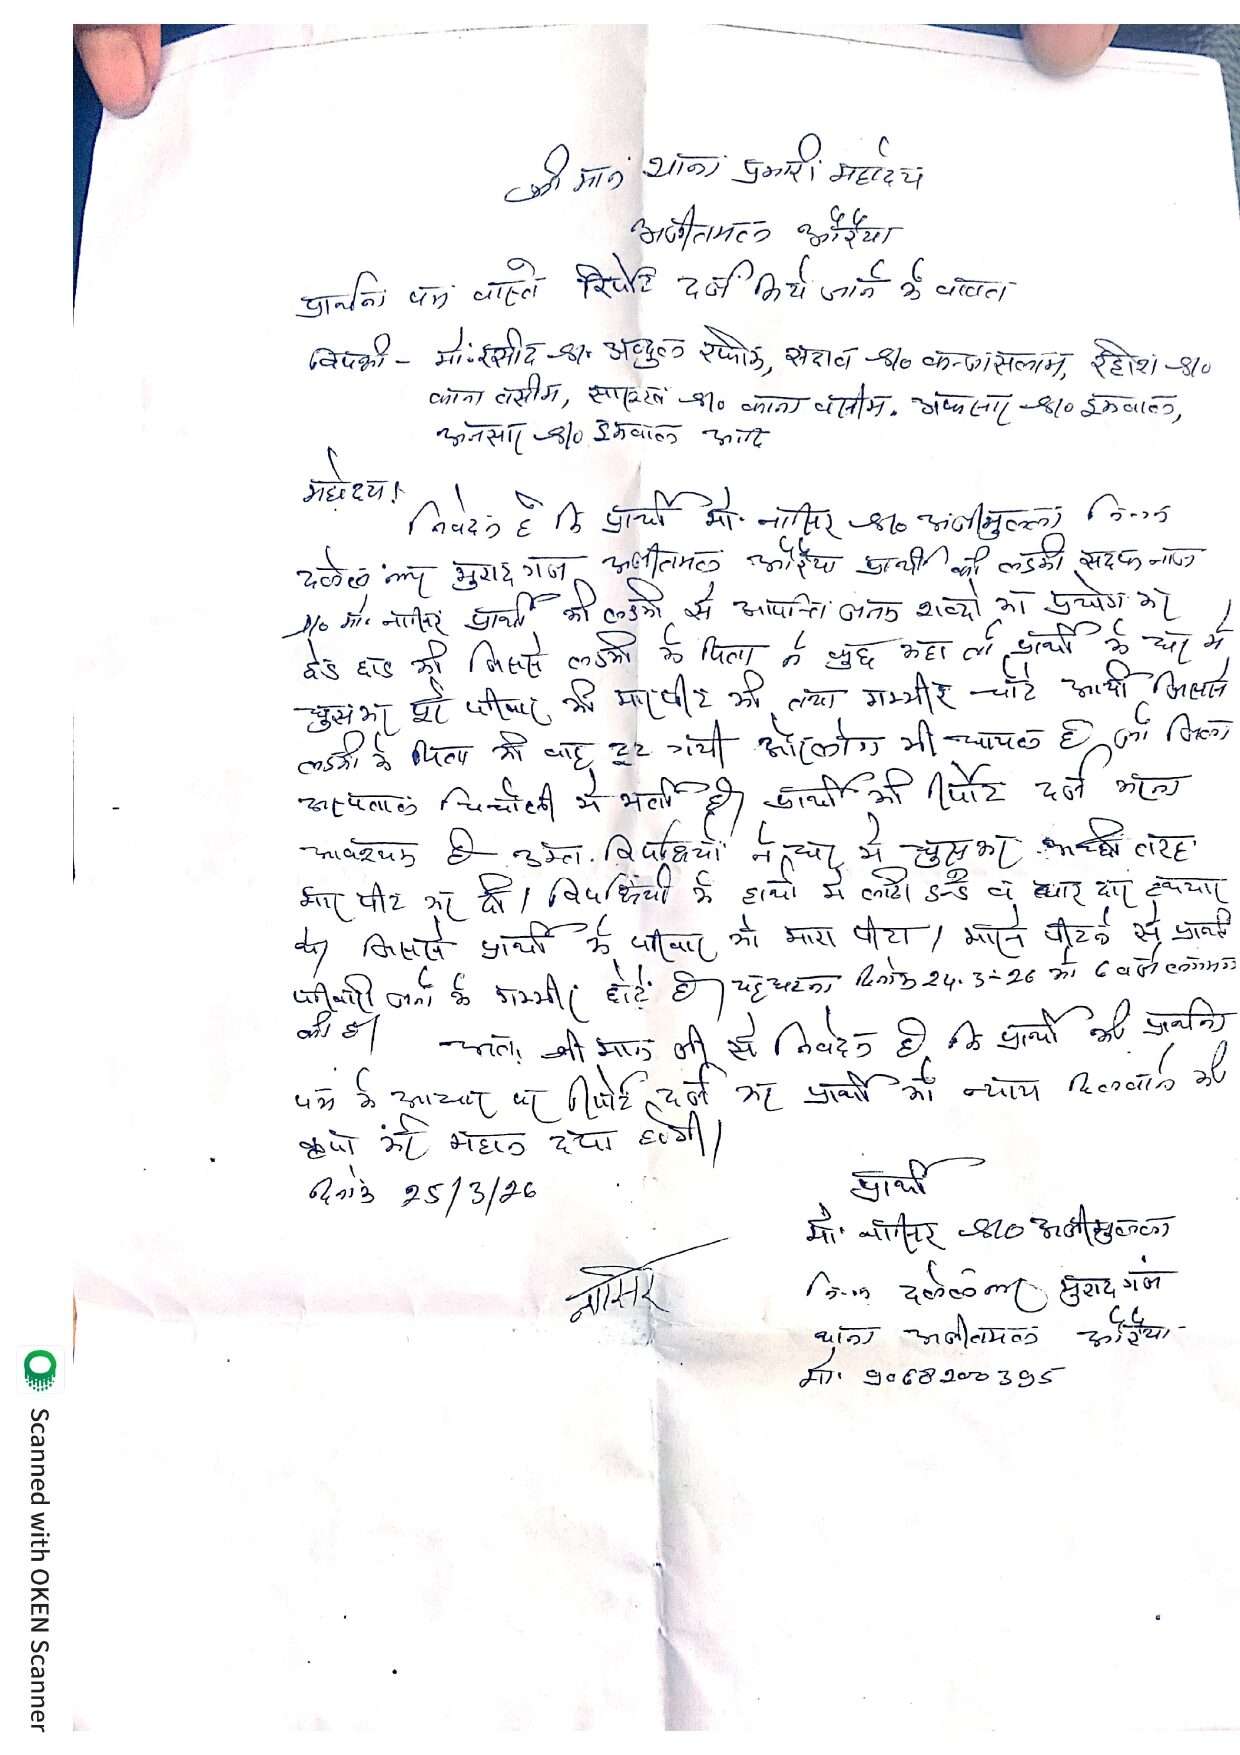 श्री मान थाना प्रभारी महोदय
अजीतमल औरैया
प्रार्थना पत्र वास्ते रिपोर्ट दर्ज किये जाने के बावत
विपक्षी - मो. रसीद S/o अब्दुल रफीक, सदाब S/o कलाम, S/o
काना वसीम, S/o काना वसीम. अफसार S/o इकबाल,
अनसार S/o इकबाल आदि
महोदय!
निवेदन है कि प्रार्थी मो. नासिर S/o अजीमुल्ला
मुरादगंज अजीतमल औरैया प्रार्थी की लडकी सदफ नाज
D/o मो. नासिर प्रार्थी की लडकी से आपत्ति जनक शब्दो का प्रयोग कर
छेड छाड की जिससे लडकी के पिता ने कुछ कहा तो प्रार्थी के घर मे
घुसकर पूरे परिवार की मारपीट की तथा गम्भीर चोटे आयी जिससे
लडकी के पिता की बाह टूट गयी और लोग भी घायल है जो जिला
अस्पताल चिचोली मे भर्ती है। प्रार्थी की रिपोर्ट दर्ज करना
आवश्यक है उक्त विपक्षियो ने घर मे घुसकर अच्छी तरह
मार पीट कर दी। विपक्षियो के हाथो मे लाठी डन्डे व धार दार हथियार
थे। जिससे प्रार्थी के परिवार को मारा पीटा। मारने पीटने से प्रार्थी
परिवारी जनो के गम्भीर चोटें है। यह घटना दिनांक 24.3-26 को 6 बजे लगभग
की है।
अतः श्री मान जी से निवेदन है कि प्रार्थी की प्रार्थना
पत्र के आधार पर रिपोर्ट दर्ज कर प्रार्थी को न्याय दिलवाने की
कृपा करें महान दया होगी।
दिनांक 25/3/26
प्रार्थी
मो. नासिर S/o अजीमुल्ला
मुरादगंज
थाना अजीतमल औरैया
मो. 9068200395
नासिर
Scanned with OKEN Scanner